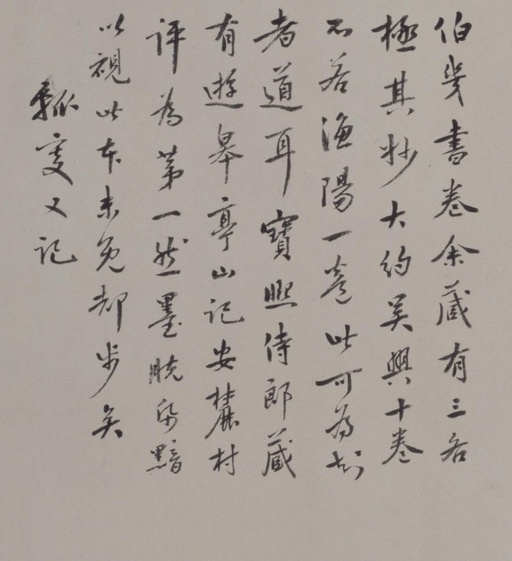 伯幾書卷余藏有三各
極其妙大約吳興十卷
不若漁陽一卷此可為知
者道耳寶熙侍郎藏
有遊皐亭山記安麓村
評為第一然墨脫紙黯
以視此本未免却步矣
瓠叟又記